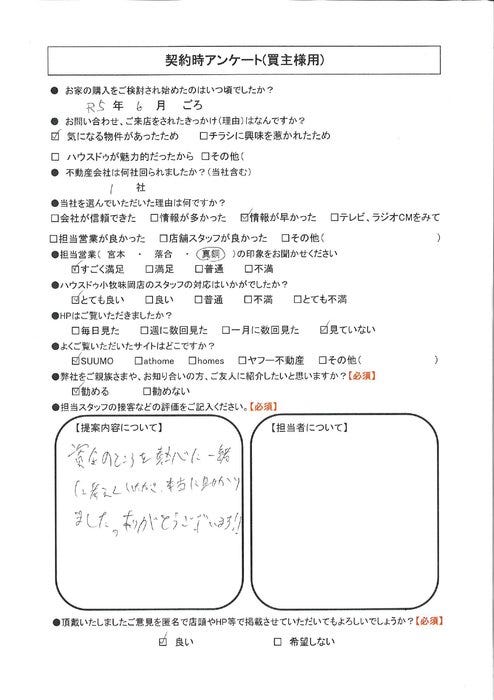 契約時アンケート(買主様用)
● お家の購入をご検討され始めたのはいつ頃でしたか？
R5 年 6 月 ごろ
● お問い合わせ、ご来店をされたきっかけ(理由)はなんですか？
☑ 気になる物件があったため □チラシに興味を惹かれたため
□ ハウスドゥが魅力的だったから □その他(
● 不動産会社は何社回られましたか？(当社含む)
1 社
●当社を選んでいただいた理由は何ですか？
□会社が信頼できた □情報が多かった ☑情報が早かった □テレビ、ラジオCMをみて
□担当営業が良かった □店舗スタッフが良かった □その他( )
●担当営業( 宮本 ・ 落合 ・ 真銅 )の印象をお聞かせください
☑すごく満足 □満足 □普通 □不満
●ハウスドゥ小牧味岡店のスタッフの対応はいかがでしたか？
☑とても良い □良い □普通 □不満 □とても不満
●HPはご覧いただきましたか？
□毎日見た □週に数回見た □一月に数回見た ☑見ていない
●よくご覧いただいたサイトはどこですか？
☑SUUMO □athome □homes □ヤフー不動産 □その他( )
●弊社をご親族さまや、お知り合いの方、ご友人に紹介したいと思いますか？【必須】
☑勧める □勧めない
●担当スタッフの接客などの評価をご記入ください。【必須】
【提案内容について】
資金のところを熱心に一緒
に考えてくださ、本当に助かり
ました。ありがとうございます!!
【担当者について】
●頂戴いたしましたご意見を匿名で店頭やHP等で掲載させていただいてもよろしいでしょうか？【必須】
☑ 良い □ 希望しない